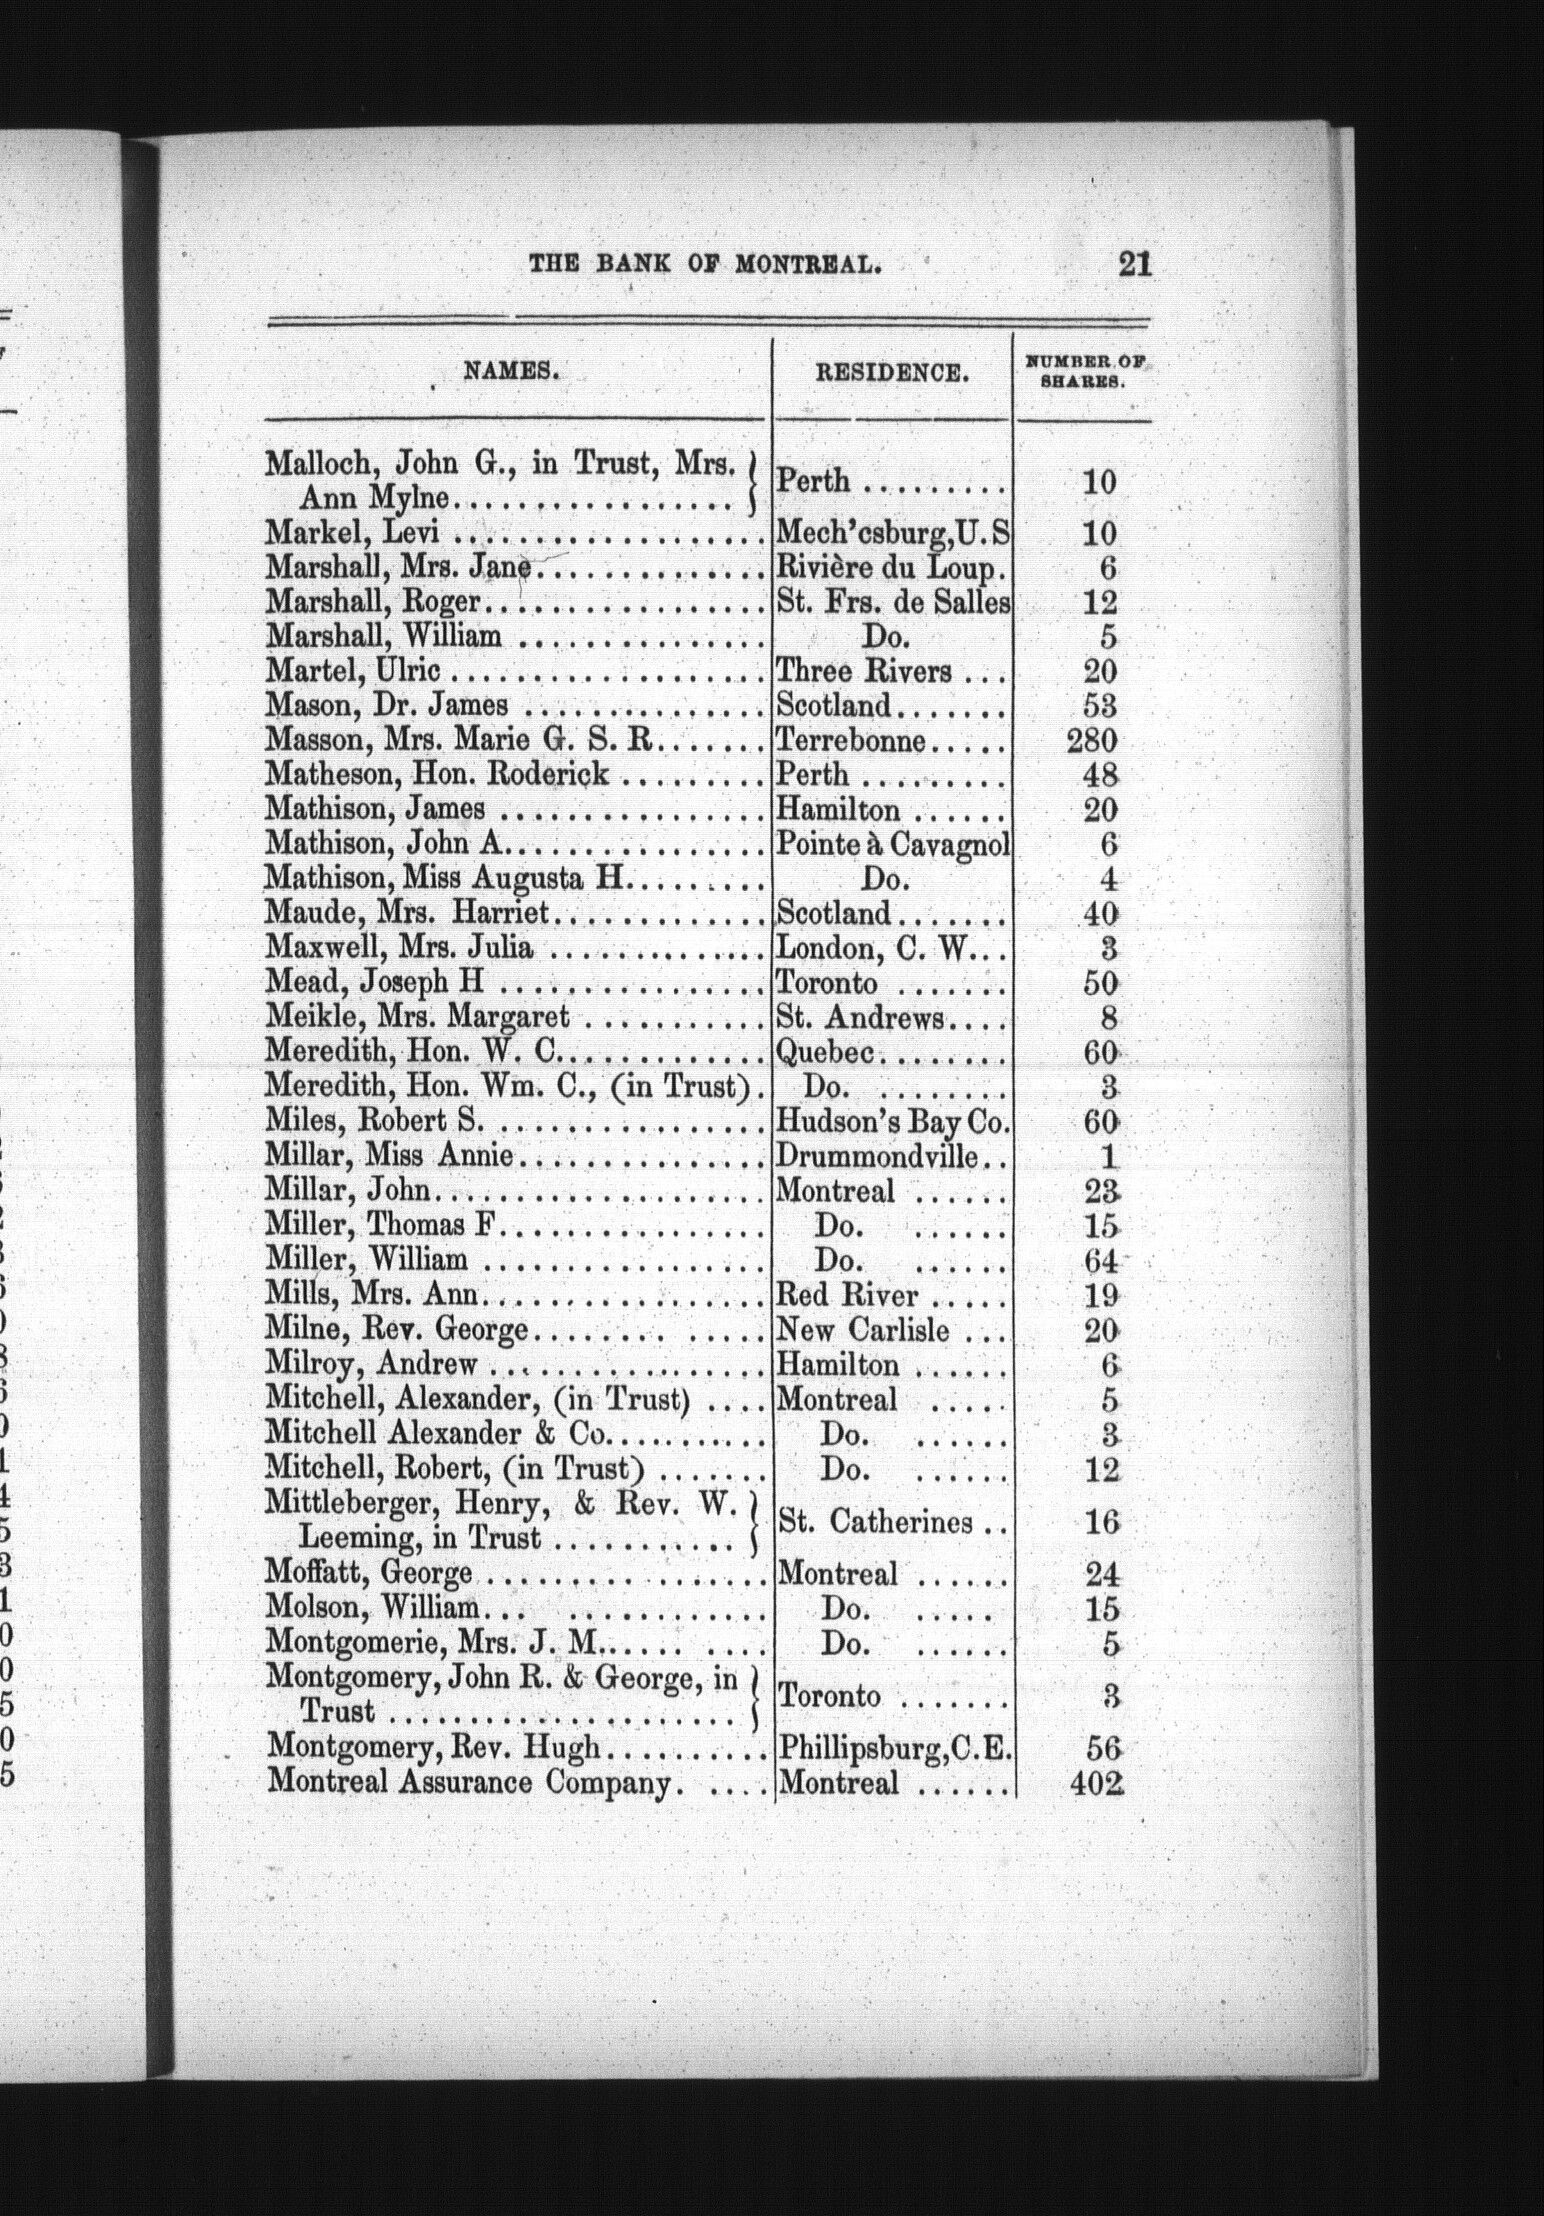 THE BANK OF MONTREAL. 21
NAMES. RESIDENCE. NUMBER OF SHARES.
Malloch, John G., in Trust, Mrs. Ann Mylne................. } Perth ......... 10
Markel, Levi ................... Mech'csburg,U.S 10
Marshall, Mrs. Jane.............. Rivière du Loup. 6
Marshall, Roger................. St. Frs. de Salles 12
Marshall, William ............... Do. 5
Martel, Ulric ................... Three Rivers ... 20
Mason, Dr. James ............... Scotland....... 53
Masson, Mrs. Marie G. S. R....... Terrebonne..... 280
Matheson, Hon. Roderick ......... Perth ......... 48
Mathison, James ................ Hamilton ...... 20
Mathison, John A................ Pointe à Cavagnol 6
Mathison, Miss Augusta H......... Do. 4
Maude, Mrs. Harriet............. Scotland....... 40
Maxwell, Mrs. Julia ............. London, C. W... 3
Mead, Joseph H ................ Toronto ....... 50
Meikle, Mrs. Margaret ........... St. Andrews.... 8
Meredith, Hon. W. C............. Quebec........ 60
Meredith, Hon. Wm. C., (in Trust). Do. ........ 3
Miles, Robert S. ................ Hudson's Bay Co. 60
Millar, Miss Annie............... Drummondville.. 1
Millar, John.................... Montreal ...... 23
Miller, Thomas F................ Do. ...... 15
Miller, William ................. Do. ...... 64
Mills, Mrs. Ann................. Red River ..... 19
Milne, Rev. George........ ..... New Carlisle ... 20
Milroy, Andrew ................. Hamilton ...... 6
Mitchell, Alexander, (in Trust) .... Montreal ..... 5
Mitchell Alexander & Co.......... Do. ...... 3
Mitchell, Robert, (in Trust) ....... Do. ...... 12
Mittleberger, Henry, & Rev. W. Leeming, in Trust ........... } St. Catherines .. 16
Moffatt, George ......... ....... Montreal ...... 24
Molson, William... ............ Do. ..... 15
Montgomerie, Mrs. J. M...... .... Do. ...... 5
Montgomery, John R. & George, in Trust ..................... } Toronto ....... 3
Montgomery, Rev. Hugh.......... Phillipsburg,C.E. 56
Montreal Assurance Company. .... Montreal ...... 402